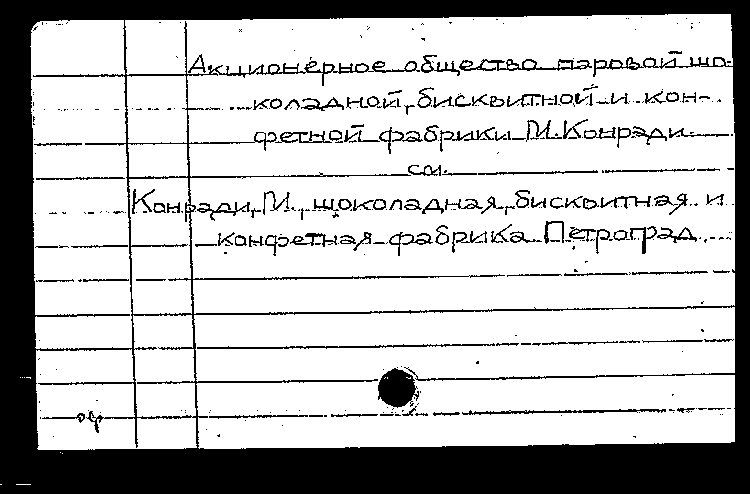 Акционерное общество паровой шо-
коладной, бисквитной и кон-
фетной фабрики М. Конради
см.
Конради, М., шоколадная, бисквитная и
конфетная фабрика Петроград